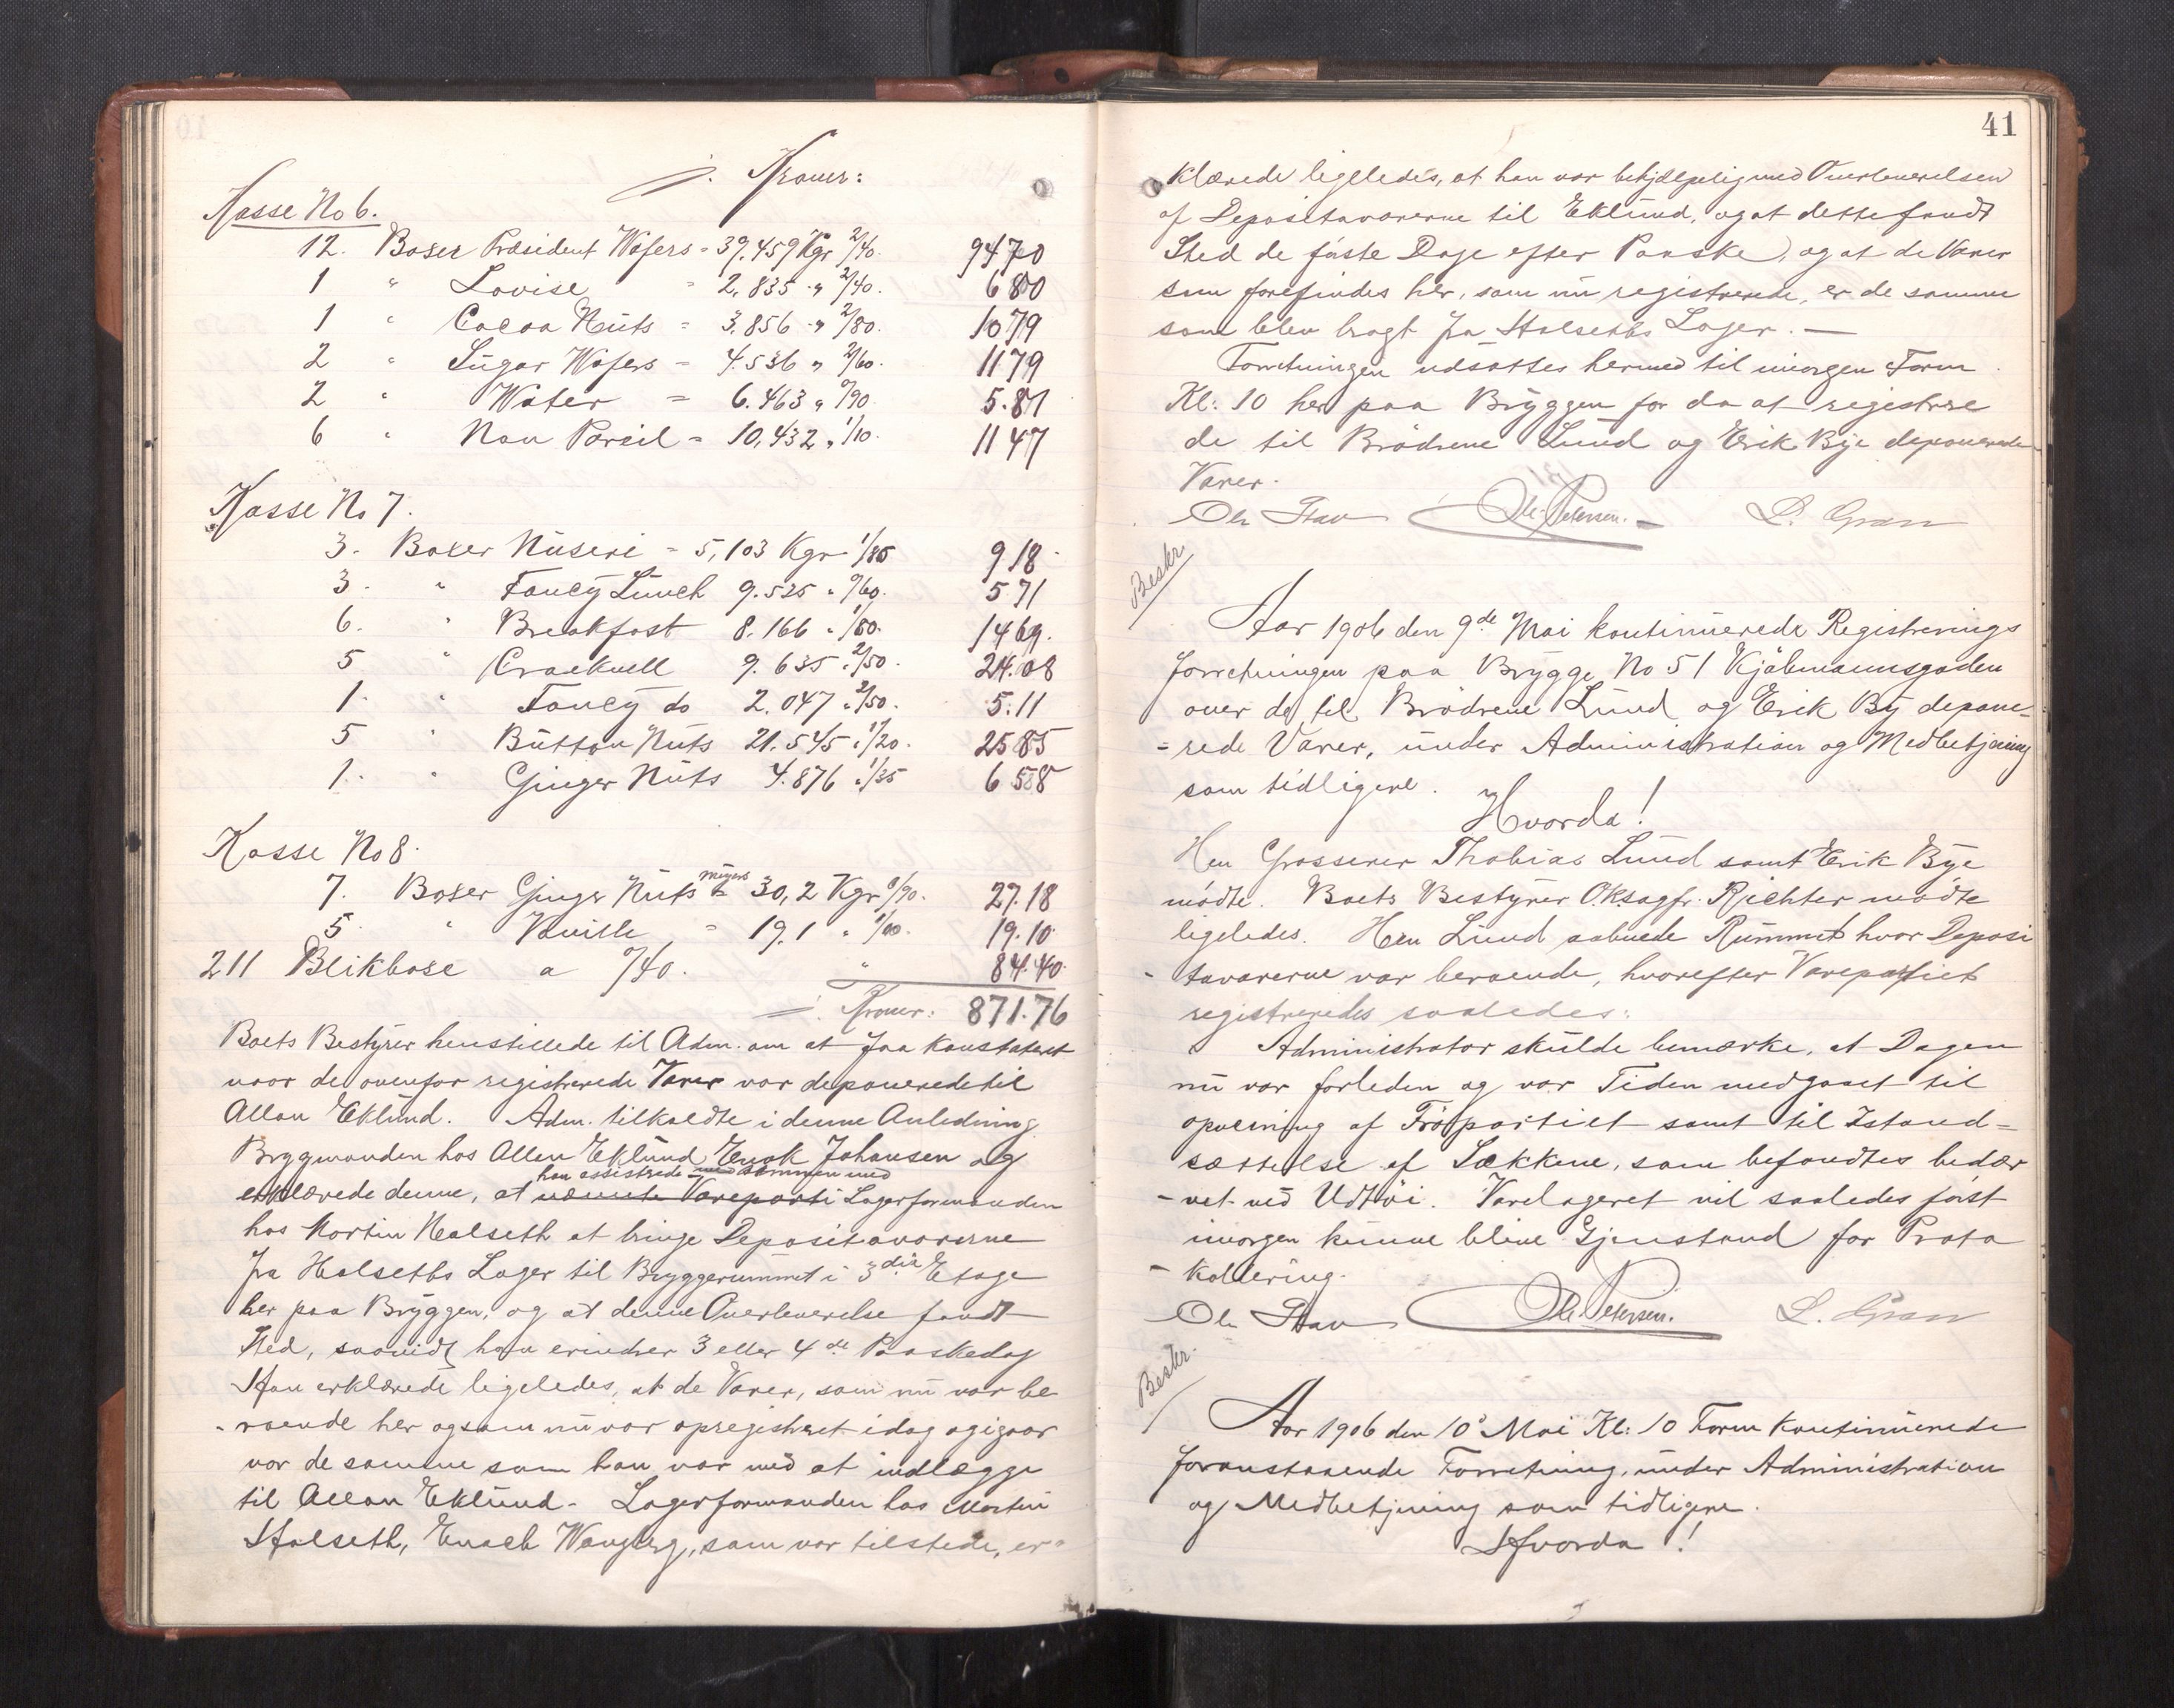 J. Kroner:
Kasse No 6.
12. Boxer President Wafers = 39,459 Kgr 2/40. 94 70
1 " Lovise = 2,835 " 2/40. 6 80
1 " Cacao Nuts = 3.856 " 2/80. 10 79
2 " Sugar Wafers = 4.536 " 2/60. 11 79
2 " Water = 6.463 " 0/90. 5.81
6 " Non Pareil = 10,432 " 1/10. 11 47
Kasse No 7.
3. Boxer Nuseri = 5,103 Kgr 1/80 9 18
3. " Fancy Lunch 9.525 " 0/60. 5 71
6. " Breakfast 8.166 " 1/80. 14 69.
5 " Cracknell 9.635 " 2/50. 24.08
1. " Fancy do 2.047 " 2/50. 5.11
5 " Button Nuts 21.545 " 1/20. 25 85
1. " Ginger Nuts 4.876 " 1/35 6 58
Kasse No 8.
7. Boxer Ginger Nuts = 30,2 Kgr 0/90. 27.18
5. " Vanille = 19,1 " 1/00. 19.10
211 Blikboxe a 0/40. " 84.40
Kroner: 871.76
Boets Bestyrer henstillede til Adm. om at faa konstateret
naar de ovenfor registrerede Varer var deponerede til
Allan Eklund. Adm. tilkaldte i denne Anledning
Bryggmanden hos Allan Eklund Enok Johansen og
han assistrede med sammen med
erklærede denne, at nævnte Vareparti Lagerformanden
hos Martin Halseth at bringe Depositavarerne
fra Halseths Lager til Bryggerummet i 3die Etage
her paa Bryggen, og at denne Overleverelse fandt
Sted, saavidt han erindrer 3 eller 4de Paaskedag
Han erklærede ligeledes, at de Varer, som nu var be
- roende her og som nu var opregistreret idag og igaar
var de samme som han var med at indlægge
til Allan Eklund. Lagerformanden hos Martin
Halseth, Enoch Wangberg, som var tilstede, er-
41
klærede ligeledes, at han var behjælpelig med Overleverelsen
af Depositavarerne til Eklund, og at dette fandt
Sted de første Dage efter Paaske, og at de Varer
som forefindes her, som nu registrerede, er de samme
som blev bragt fra Halseths Lager. —
Forretningen udsattes hermed til imorgen Form.
Kl: 10 her paa Bryggen for da at registrere
de til Brødrene Lund og Erik Bye deponerede
Varer.
Ole Stav Ole Petersen. L. Gran
Beskr.
Aar 1906 den 9de Mai kontinuerede Registrerings
forretningen paa Brygge No 51 Kjøbmannsgaden
over de til Brødrene Lund og Erik By depone=
= rede Varer, under Administration og Medbetjening
som tidligere.
Hvorda!
Herr Grosserer Thobias Lund samt Erik Bye
mødte. Boets Bestyrer O.R.sagfr. Richter mødte
ligeledes. Herr Lund aabnede Rummet hvor Deposi
- tavarerne var beroende, hvorefter Varepartiet
registreredes saaledes:
Administrator skulde bemærke, at Dagen
nu var forleden og var Tiden medgaaet til
opveining af Frøpartiet samt til Istand=
sættelse af Sækkene, som befandtes bedær
- vet ved Udtøi. Varelageret vil saaledes først
imorgen kunne blive Gjenstand for Proto
- kollering.
Ole Stav Ole Petersen. L. Gran
Beskr.
Aar 1906 den 10' Mai Kl: 10 Form kontinuerede
foranstaaende Forretning, under Administration
og Medbetjening som tidligere.
Hvorda!